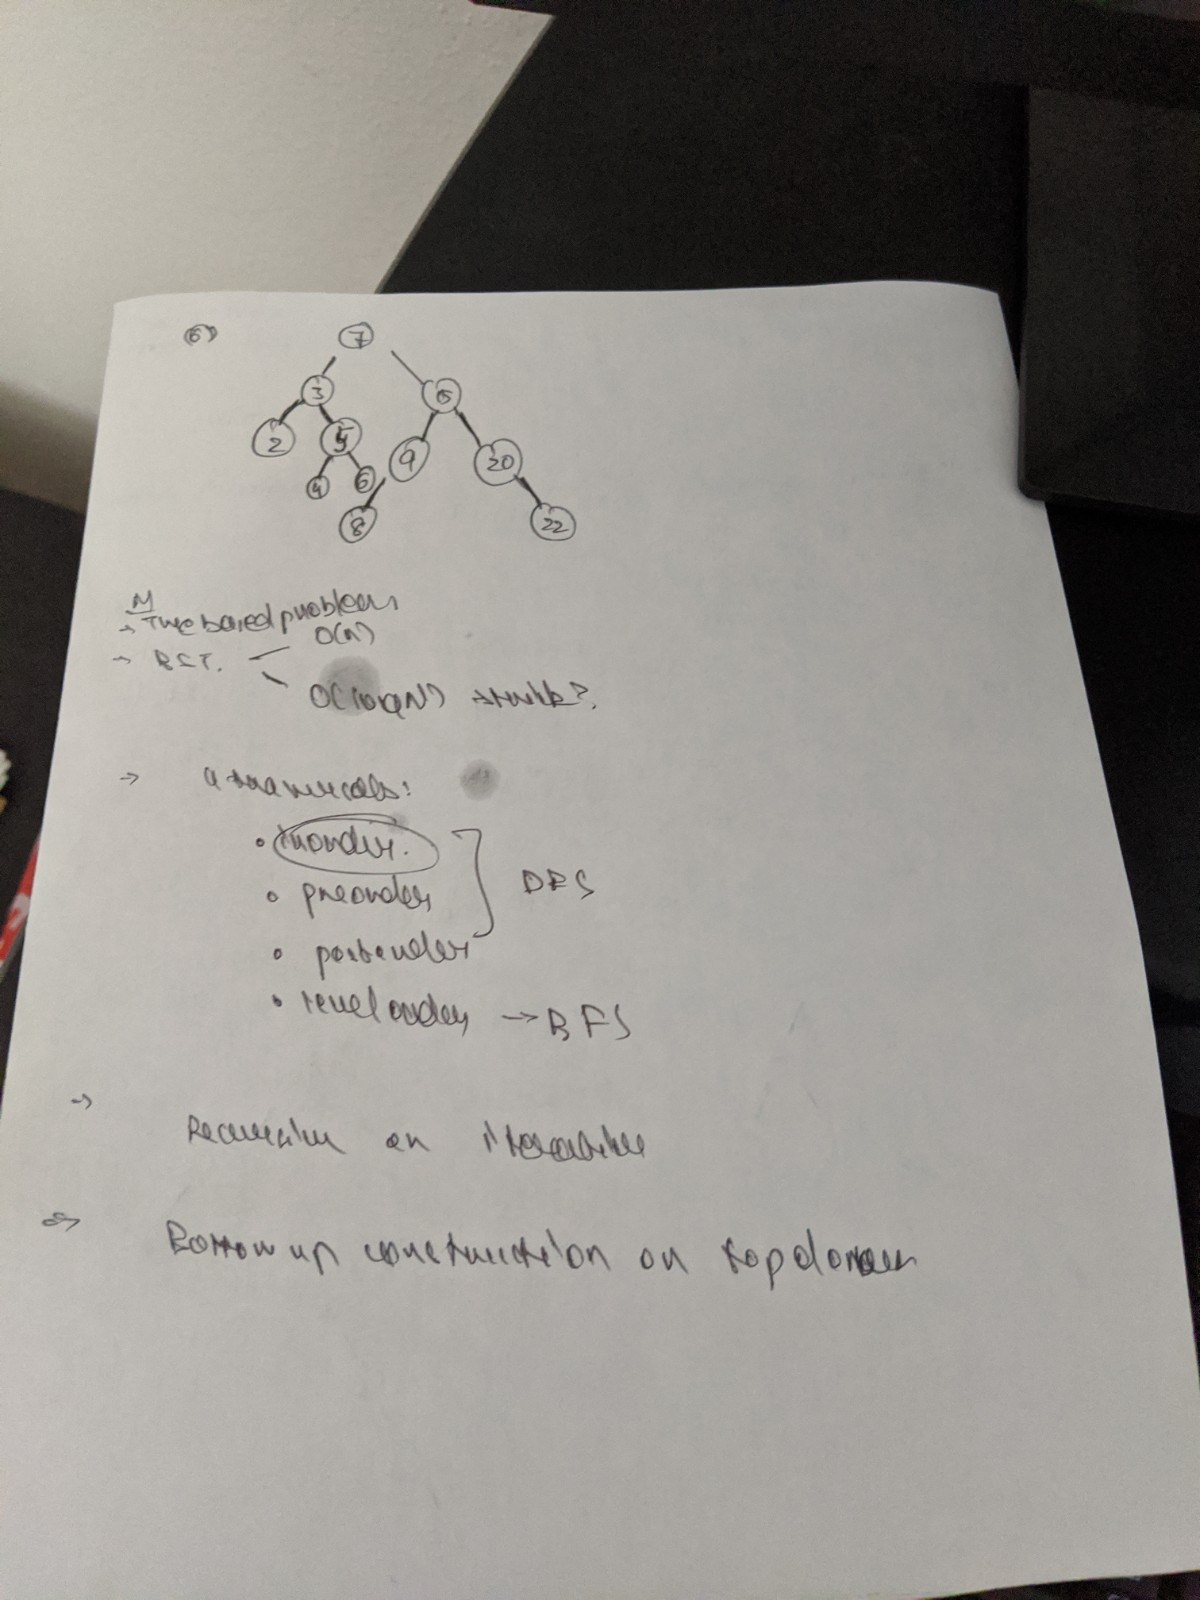 6)
7
3 6
2 5 9 20
4 6
8 22
M
→ Tree based problem
→ BST. O(n)
O(logN)
→ 4 traversals:
• Inorder.
• preorder DFS
• postorder
• level order → BFS
→
Recursive or iterative
⇒ Bottom up construction or top down